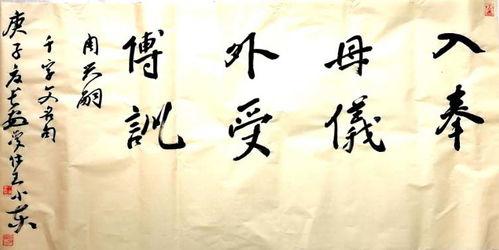 入奉
母儀
外受
傅訓
周兴嗣
千字文名句
庚子